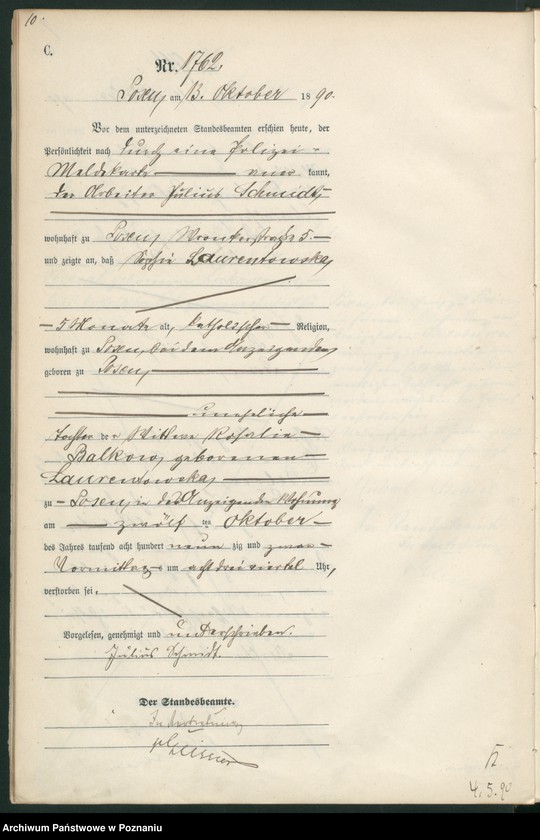 10.
C.
Nr. 1762.
Posen, am 13. Oktober 1890.
Vor dem unterzeichneten Standesbeamten erschien heute, der
Persönlichkeit nach durch eine Polizei-
Meldekarte aner kannt,
der Arbeiter Julius Schmidt,
wohnhaft zu Posen, Wronkerstraße 5.
und zeigte an, daß Sophie Laurentowska,
5 Monate alt, katholischer Religion,
wohnhaft zu Posen, bei dem Anzeigenden,
geboren zu Posen,
uneheliche
Tochter der Wittwe Rosalie
Balkow, geborenen
Laurentowska,
zu Posen, in des Anzeigenden Wohnung
am zwölf ten Oktober
des Jahres tausend acht hundert neun zig und zwar
Vormittags um acht drei viertel Uhr,
verstorben sei.
Vorgelesen, genehmigt und unterschrieben.
Julius Schmidt.
Der Standesbeamte.
In Vertretung
4.5.90
Archiwum Państwowe w Poznaniu